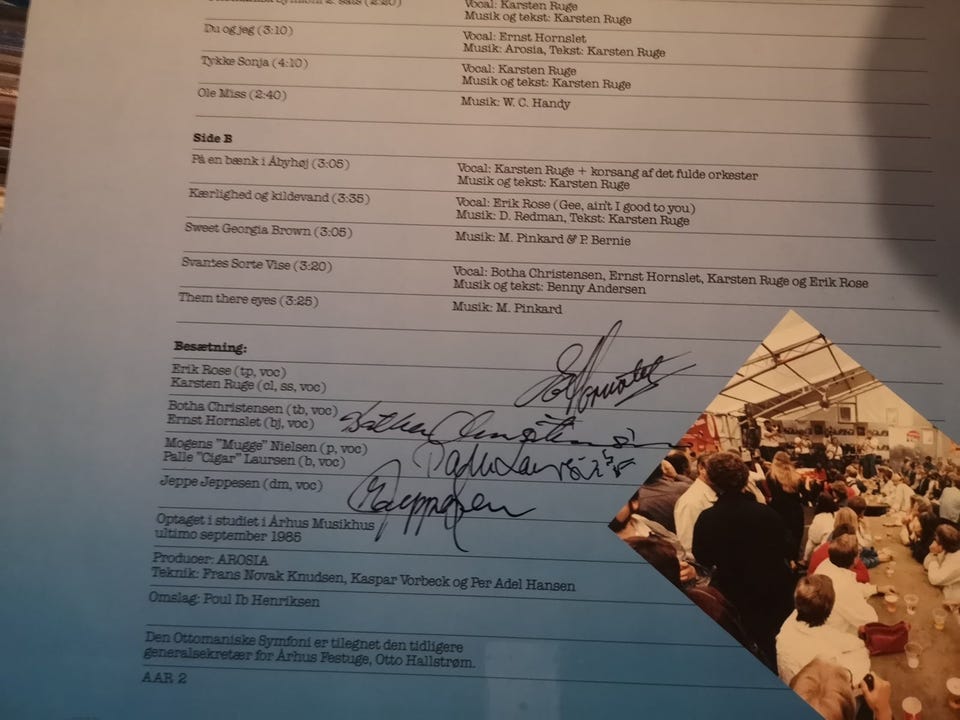 Vocal: Karsten Ruge
Musik og tekst: Karsten Ruge
Du og jeg (3:10)
Vocal: Ernst Hornslet
Musik: Arosia, Tekst: Karsten Ruge
Tykke Sonja (4:10)
Vocal: Karsten Ruge
Musik og tekst: Karsten Ruge
Ole Miss (2:40)
Musik: W. C. Handy
Side B
På en bænk i Åbyhøj (3:05)
Vocal: Karsten Ruge + korsang af det fulde orkester
Musik og tekst: Karsten Ruge
Kærlighed og kildevand (3:35)
Vocal: Erik Rose (Gee, ain't I good to you)
Musik: D. Redman, Tekst: Karsten Ruge
Sweet Georgia Brown (3:05)
Musik: M. Pinkard & P. Bernie
Svantes Sorte Vise (3:20)
Vocal: Botha Christensen, Ernst Hornslet, Karsten Ruge og Erik Rose
Musik og tekst: Benny Andersen
Them there eyes (3:25)
Musik: M. Pinkard
Besætning:
Erik Rose (tp, voc)
Karsten Ruge (cl, ss, voc)
Botha Christensen (tb, voc)
Ernst Hornslet (bj, voc)
Mogens "Mugge" Nielsen (p, voc)
Palle "Cigar" Laursen (b, voc)
Jeppe Jeppesen (dm, voc)
Optaget i studiet i Århus Musikhus
ultimo september 1985
Producer: AROSIA
Teknik: Frans Novak Knudsen, Kaspar Vorbeck og Per Adel Hansen
Omslag: Poul Ib Henriksen
Den Ottomaniske Symfoni er tilegnet den tidligere
generalsekretær for Århus Festuge, Otto Hallstrøm.
AAR 2